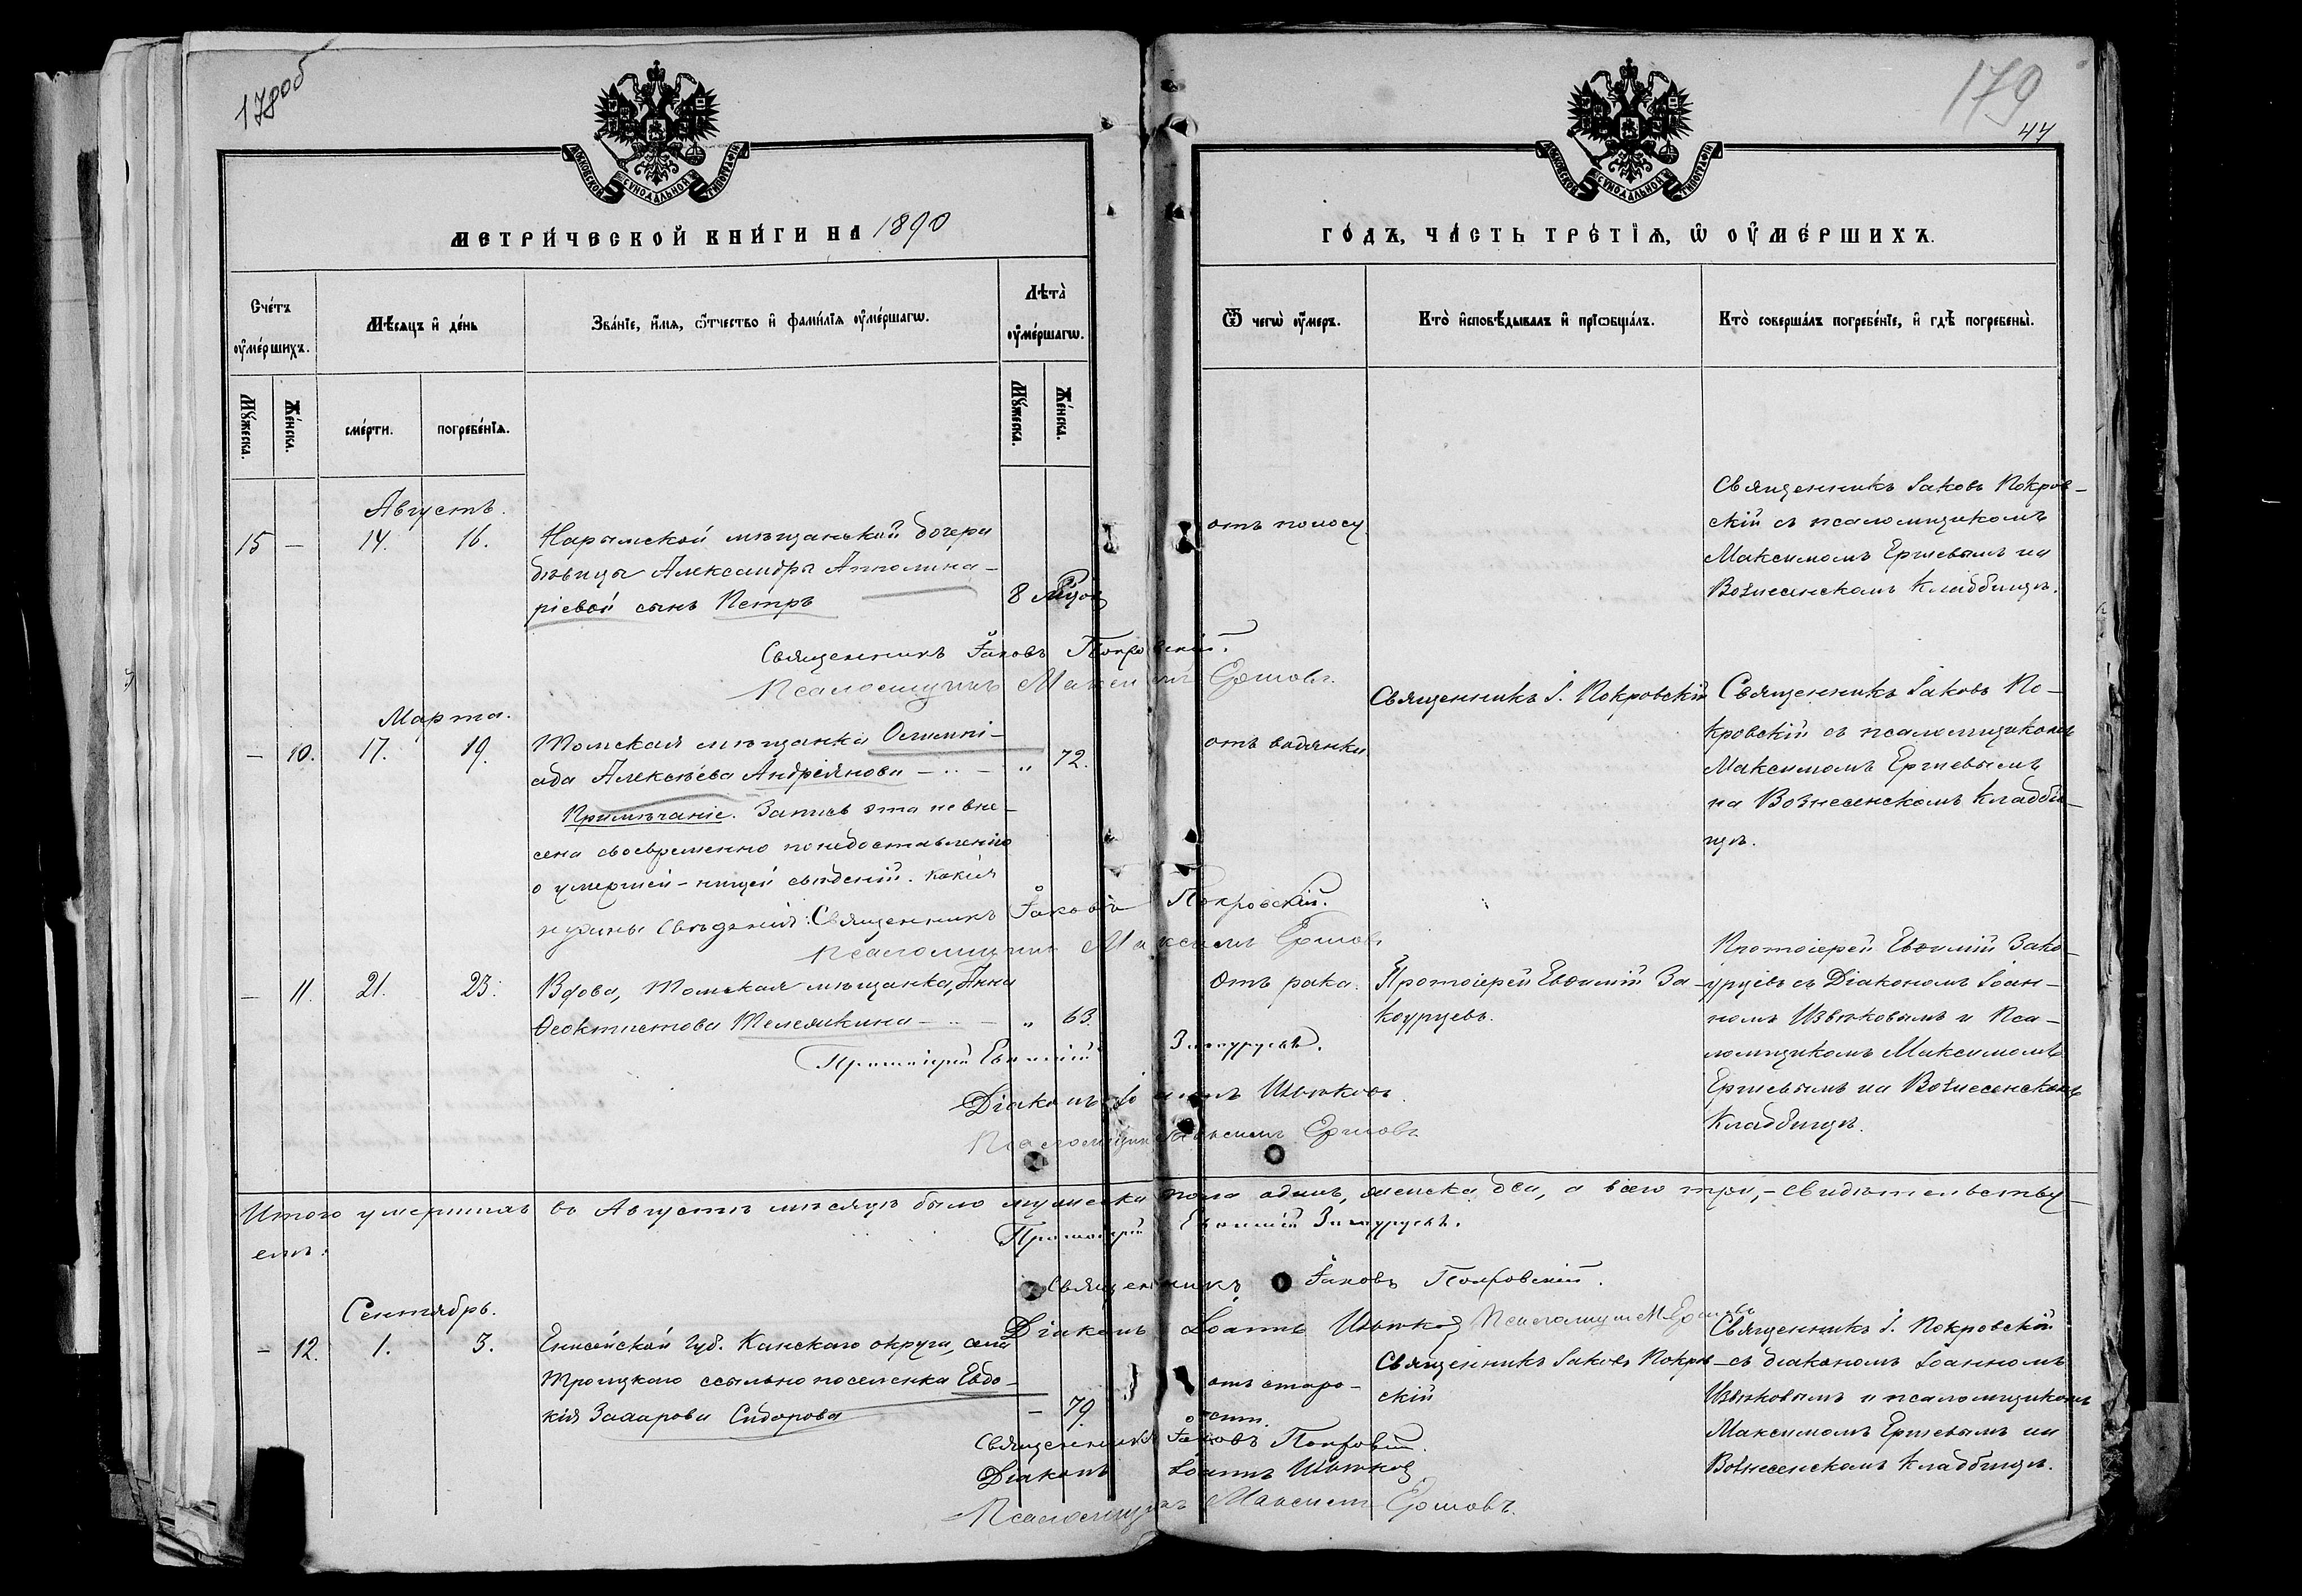 178об
179
44
МОСКОВСКОЙ СѴНОДАЛЬНОЙ ТИПОГРАФІИ
МОСКОВСКОЙ СѴНОДАЛЬНОЙ ТИПОГРАФІИ
МЕТРИ́ЧЕСКОЙ КНИ́ГИ НА 1890
ГО́ДЪ, ЧА́СТЬ ТРЕ́ТІѦ, Ѡ҆ ОУ҆МЕ́РШИХЪ.
Сче́тъ оу҆ме́ршихъ.
Мѣ́сѧцъ и҆ де́нь
Зва́нїе, и҆́мѧ, ѻ҆́тчество и҆ фами́лїѧ оу҆ме́ршагѡ.
Лѣта̀ оу҆ме́ршагѡ.
Ѿ чегѡ̀ оу҆́меръ.
Кто̀ и҆сповѣ́дывалъ и҆ прїѡбща́лъ.
Кто̀ соверша́лъ погребе́нїе, и҆ гдѣ̀ погребены̀.
Мꙋ́жеска.
Же́нска.
сме́рти.
погребе́нїѧ.
Мꙋ́жеска.
Же́нска.
Августъ.
15 — 14. 16.
Нарымской мѣщанской дочери
дѣвицы Александры Апполина-
ріевой сынъ Петръ
8
отъ поносу
Священникъ Іаковъ Покров-
скій съ псаломщикомъ
Максимомъ Ершевымъ на
Вознесенскомъ кладбищѣ.
Священникъ Іаковъ Покровскій.
Псаломщикъ Максимъ Ершовъ.
Марта.
— 10. 17. 19.
Томская мѣщанка Олимпі-
ада Алексѣева Андреянова — „ — „ 72.
Примѣчаніе. Запись эта не вне-
сена своевременно по недоставленію
о умершей - нищей свѣдѣній. какія
нужны свѣдѣнія: Священникъ Іаковъ Покровскій.
Псаломщикъ Максимъ Ершовъ
отъ водянки
Священникъ І. Покровскій
Священникъ Іаковъ По-
кровскій съ псаломщикомъ
Максимомъ Ершевымъ
на Вознесенскомъ кладби-
щѣ.
— 11. 21. 23.
Вдова, Томская мѣщанка, Анна
Ѳеоктистова Телемкина — „ — „ 63.
Отъ рака.
Протоіерей Евѳимій За-
коурцевъ.
Протоіерей Евѳимій Зако-
урцевъ съ Діакономъ Іоан-
номъ Извѣковымъ и Пса-
ломщикомъ Максимомъ
Ершевымъ на Вознесенскомъ
Кладбищѣ.
Протоіерей Евѳимій Закоурцевъ.
Діаконъ Іоаннъ Извѣковъ.
Псаломщикъ Максимъ Ершовъ
Итого умершихъ въ Августѣ мѣсяцѣ было мужеска пола одинъ, женска два, а всего три, - свидѣтельству-
емъ:
Протоіерей Евѳимій Закоурцевъ.
Священникъ Іаковъ Покровскій.
Діаконъ Іоаннъ Извѣковъ Псаломщикъ М. Ершовъ
Сентябрь.
— 12. 1. 3.
Енисейской Губ. Канскаго округа, села
Троицкаго ссыльно поселенка Евдо-
кія Захарова Сидорова — 79.
отъ старо-
сти.
Священникъ Іаковъ Покров-
скій
Священникъ І. Покровскій
съ діакономъ Іоанномъ
Извѣковымъ и псаломщикомъ
Максимомъ Ершевымъ на
Вознесенскомъ кладбищѣ.
Священникъ Іаковъ Покровскій.
Діаконъ Іоаннъ Извѣковъ
Псаломщикъ Максимъ Ершовъ.